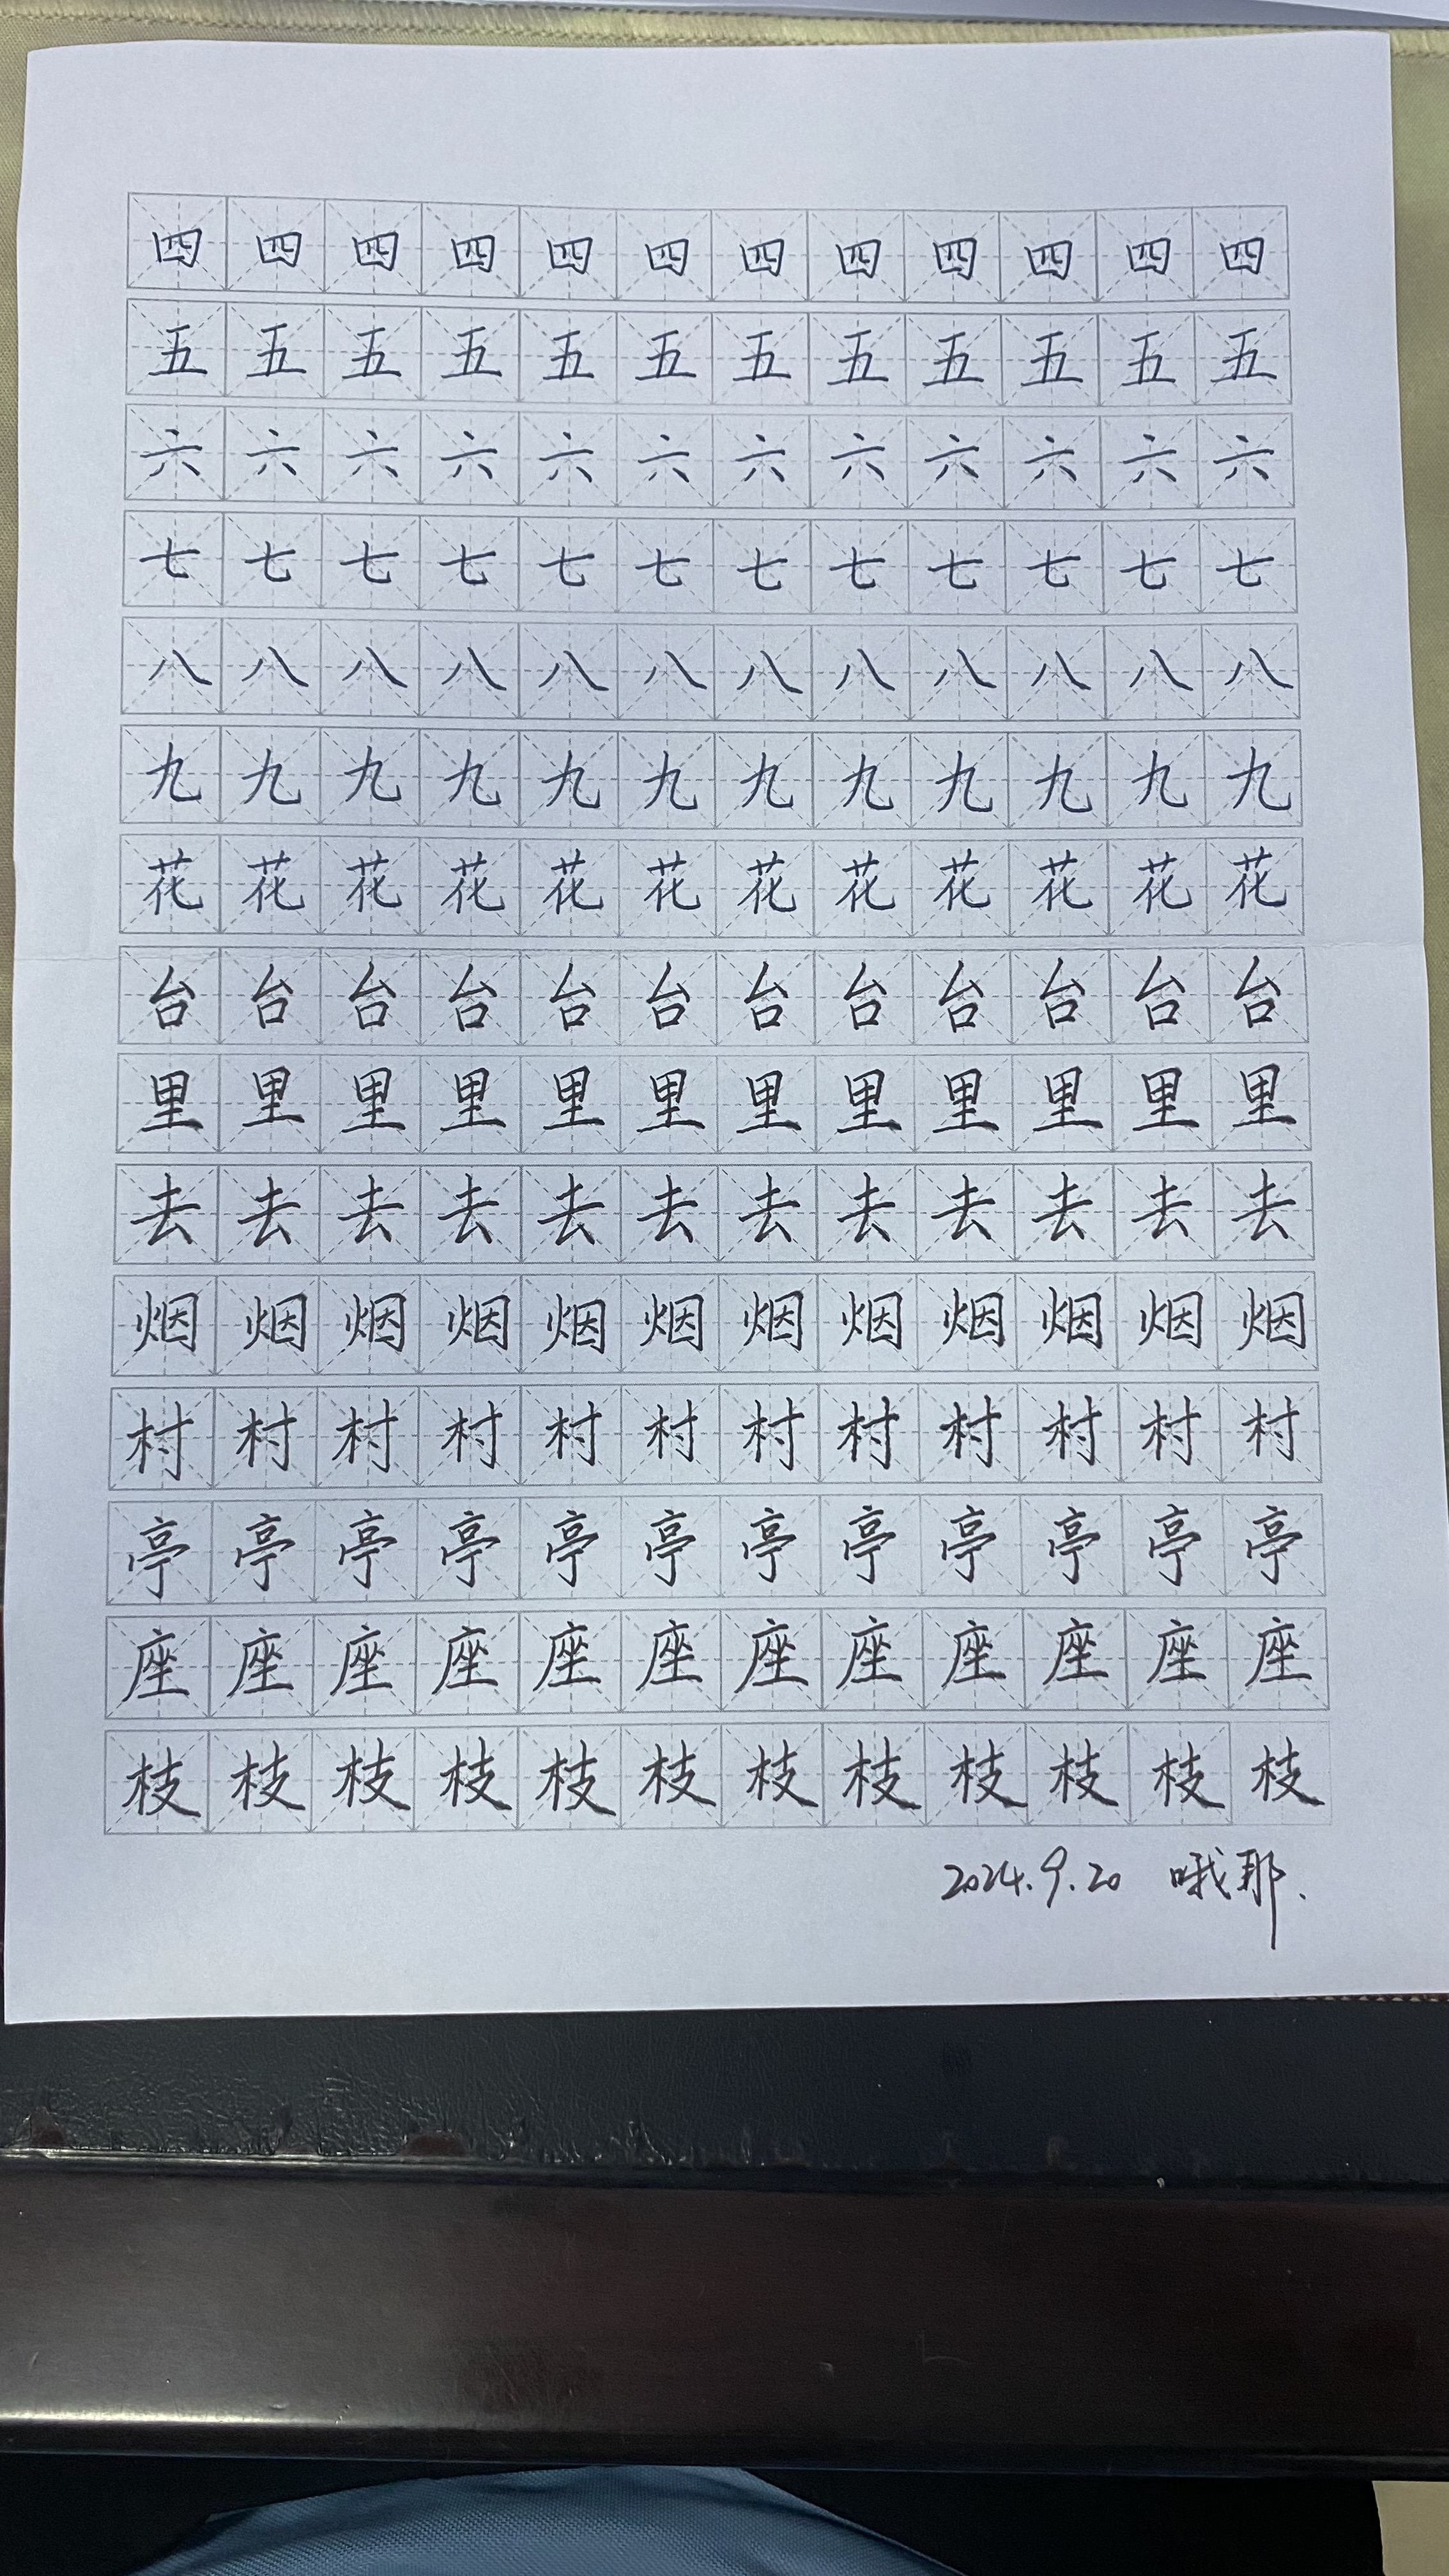 四四四四四四四四四四四四
五五五五五五五五五五五五
六六六六六六六六六六六六
七七七七七七七七七七七七
八八八八八八八八八八八八
九九九九九九九九九九九九
花花花花花花花花花花花花
台台台台台台台台台台台台
里里里里里里里里里里里里
去去去去去去去去去去去去
烟烟烟烟烟烟烟烟烟烟烟烟
村村村村村村村村村村村村
亭亭亭亭亭亭亭亭亭亭亭亭
座座座座座座座座座座座座
枝枝枝枝枝枝枝枝枝枝枝枝
2024.9.20 哦那.